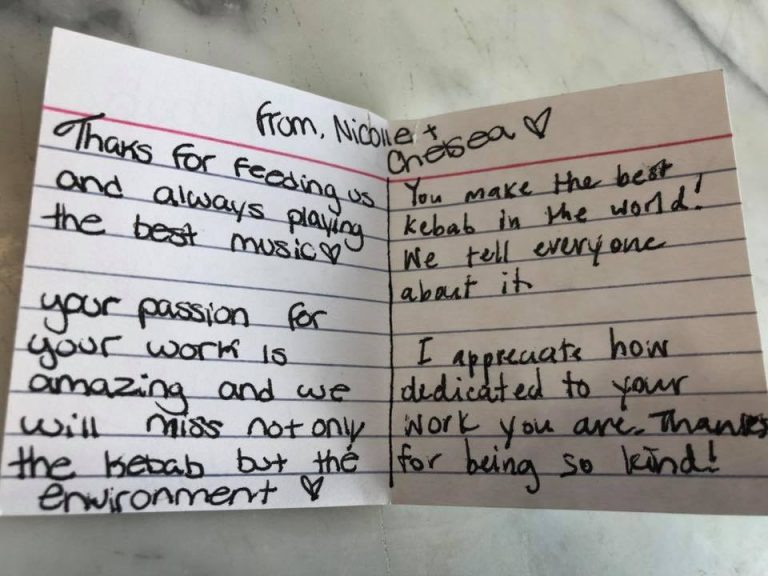 From, Nicolle +
Chelsea ♡
Thanks for feeding us
and always playing
the best music♡
your passion for
your work is
amazing and we
will miss not only
the kebab but the
environment ♡
You make the best
kebab in the world!
We tell everyone
about it
I appreciate how
dedicated to your
work you are. Thanks
for being so kind!